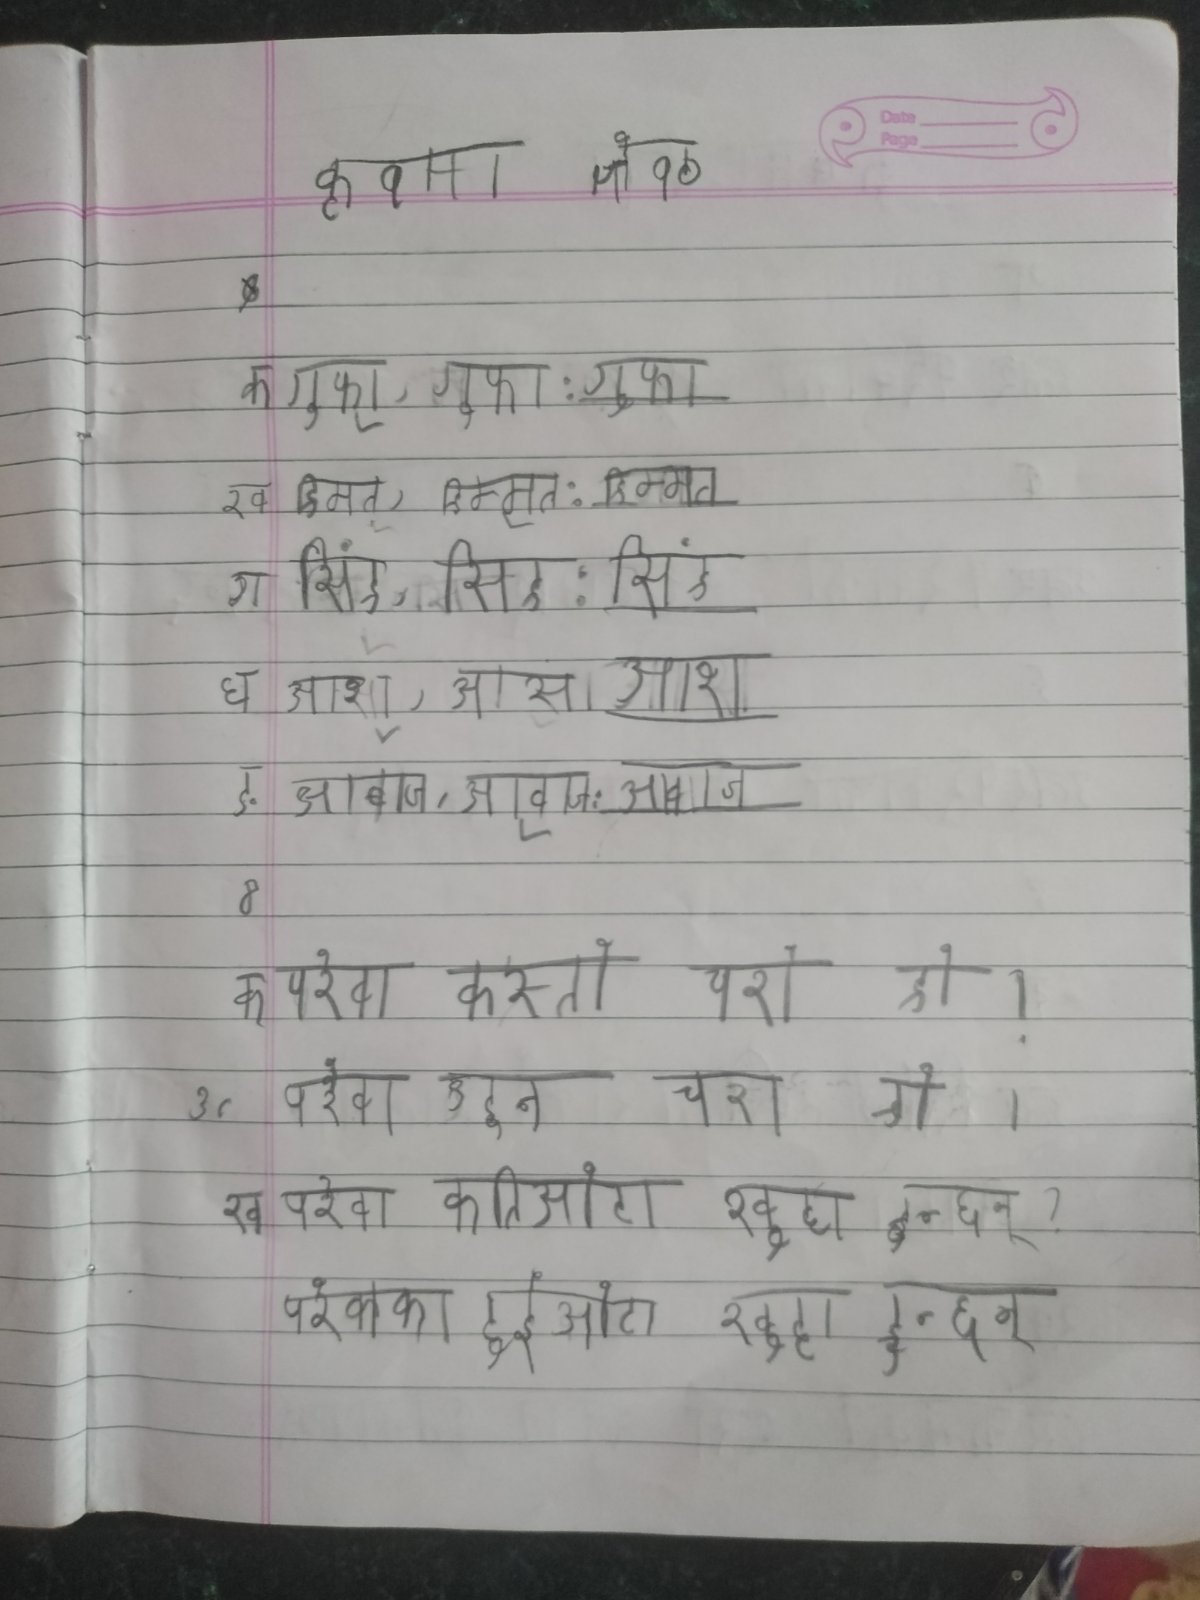 Date
Page
क गुफा, गुफा : गुफा
ख हिमत, हिम्मत : हिम्मत
ग सिंह, सिह : सिंह
घ आशा, आस। आशा
ङ आवाज, आवाज : आवाज
४
क परेवा कस्तो चरो हो ?
उ: परेवा उड्न चरा हो ।
ख परेवा कतिओटा खुट्टा हुन्छन् ?
परेवाका दुईओटा खुट्टा हुन्छन्